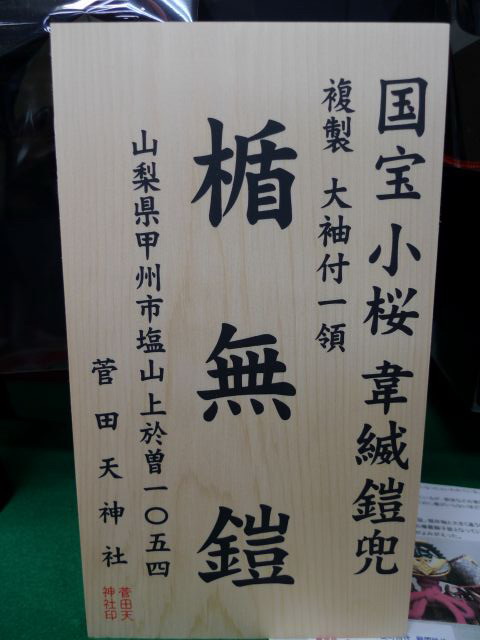 国宝 小桜 韋縅鎧兜
複製 大袖付一領
楯無鎧
山梨県甲州市塩山上於曽一〇五四
菅田天神社
菅田天
神社印